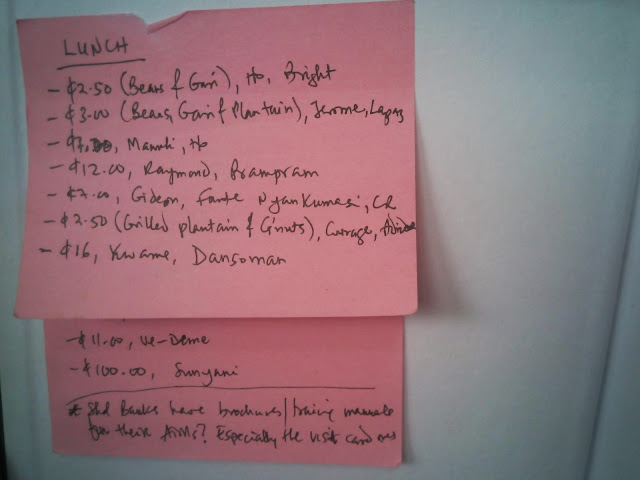 LUNCH
- ¢2.50 (Beans & Gari), Ho, Bright
- ¢3.00 (Beans, Gari & Plantain), Jerome, Lapaz
- ¢7.00, Mawuli, Ho
- ¢12.00, Raymond, Prampram
- ¢7.00, Gideon, Fante Nyankumasi, CR
- ¢2.50 (Grilled plantain & G'nuts), Courage,
- ¢16, Kwame, Dansoman
- ¢11.00, Ve-Deme
- ¢100.00, Sunyani
* Shd Banks have brochures/training manuals
for their ATMs? Especially the visa card